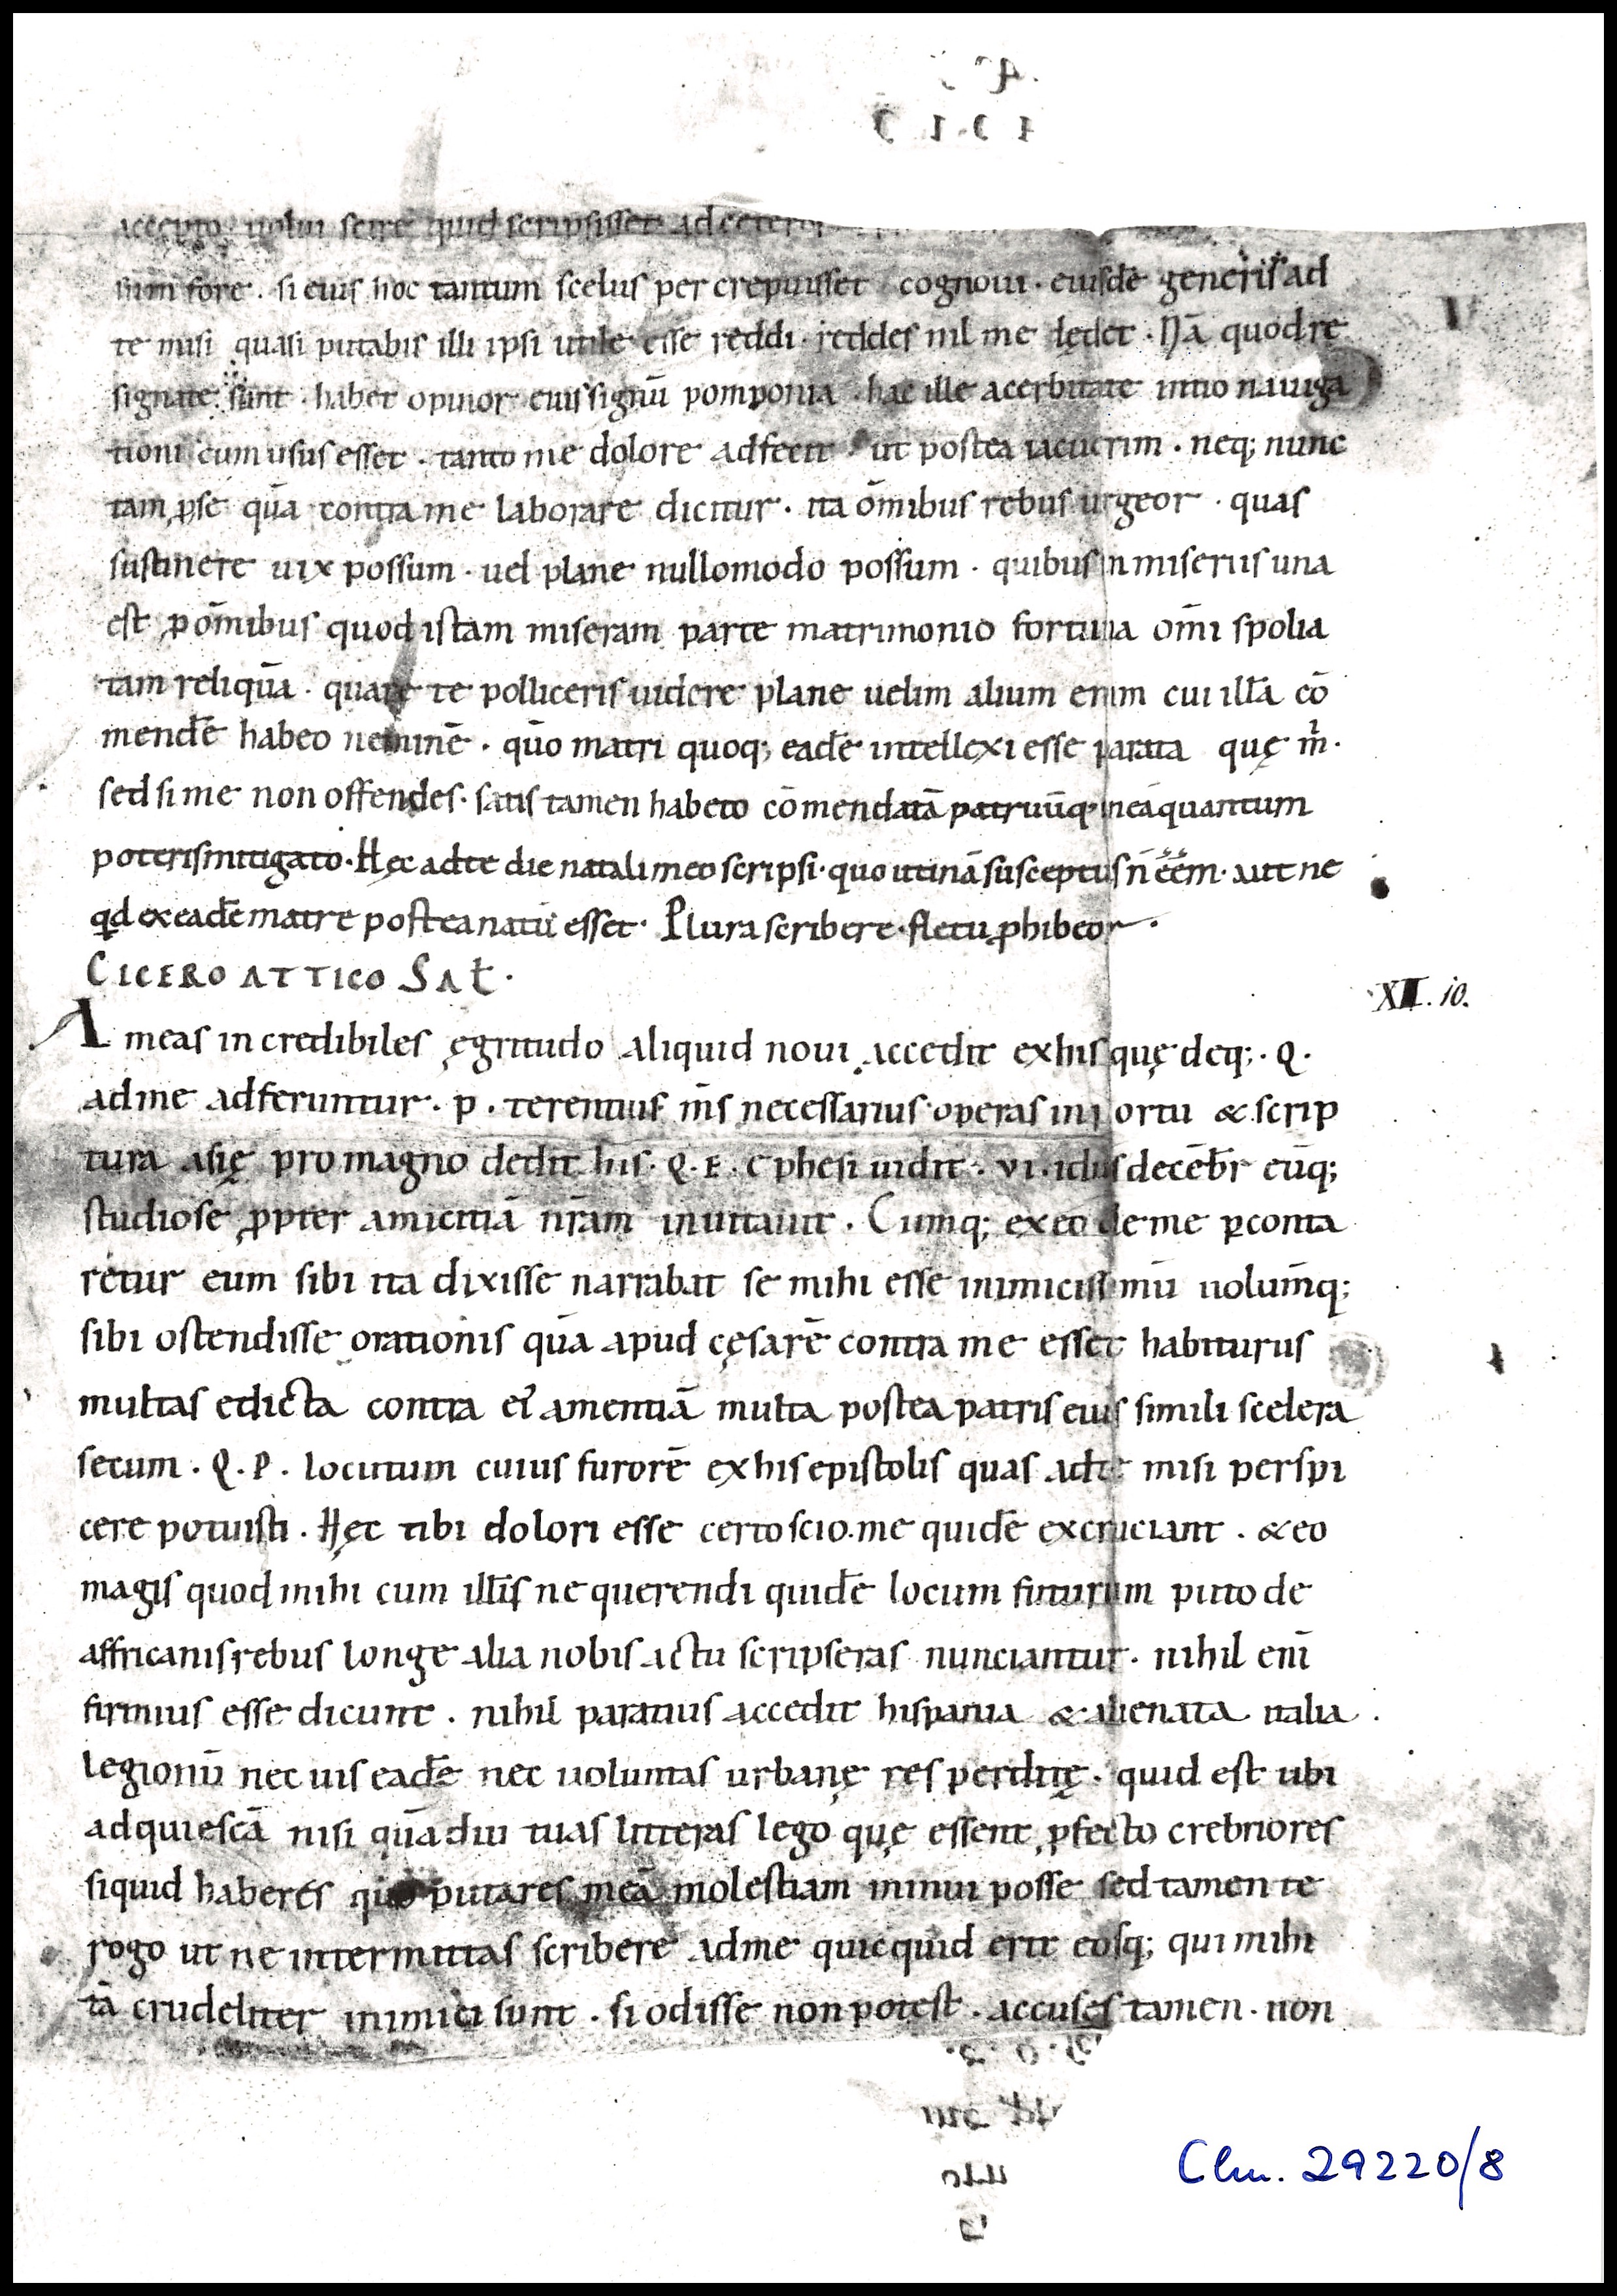 accepto uolui scire quid scripsisset ad ceteros
simi fore . si eius hoc tantum scelus per crepuisset cognoui . eiusdē generis ad
te misi quasi putabis illi ipsi utile esse reddi . reddes nil me lędet . Nā quod re
signate sunt . habet opinor eius signū pomponia . hac ille acerbitate initio nauiga
tioni cum usus esset . tanto me dolore adfecit ut postea iacuerim . neq; nunc
tam ꝓse quā contra me laborare dicitur . ita om̄ibus rebus urgeor . quas
sustinere uix possum . uel plane nullomodo possum . quibus in miseriis una
est ꝓ om̄ibus quod istam miseram parte matrimonio fortuna om̄i spolia
tam reliquā . quare te polliceris uidere plane uelim alium enim cui illā cō
mendē habeo neminē . quō matri quoq; eadē intellexi esse parata quę m̄ .
sed si me non offendes . satis tamen habeto cōmendatā patruūq; meā quantum
poteris mitigato . Hęc ad te die natali meo scripsi . quo utinā susceptus n̄ eēm . aut ne
qd ex eadē matre postea natū esset . Plura scribere fletu ꝓhibeor .
CICERO ATTICO SAƚ .
XII. 10.
A meas incredibiles ęgritudo aliquid noui accedit ex his quę deq; . Q .
ad me adferuntur . p . terentius m̄s necessarius operas in portu & scrip
tura asię pro magno dedit his . Q . E . Ephesi uidit . VI . idus decēbr eūq;
studiose ꝓpter amicitiā nr̄am inuitauit . Cumq; ex eo de me ꝑconta
retur eum sibi ita dixisse narrabat se mihi esse inimicissimū uolum̄q;
sibi ostendisse orationis quā apud cęsarē contra me esset habiturus
multas edicta contra ei' amentiā multa postea patris eius simili scelera
secum . Q . P . locutum cuius furorē ex his epistolis quas ad te misi perspi
cere potuisti . Hęc tibi dolori esse certo scio . me quidē excruciant . & eo
magis quod mihi cum illis ne querendi quidē locum futurum puto de
affricanis rebus longe alia nobis actu scripseras nunciantur . nihil enī
firmius esse dicunt . nihil paratius accedit hispania & alienata italia .
legionū nec uis eadē nec uoluntas urbanę res perditę . quid est ubi
adquiescā nisi quādiu tuas litteras lego quę essent ꝓfecto crebriores
siquid haberes quo putares meā molestiam minui posse sed tamen te
rogo ut ne intermittas scribere ad me quicquid erit eosq; qui mihi
tā crudeliter inimici sunt . si odisse non potest . accuses tamen . non
Clm. 29220/8